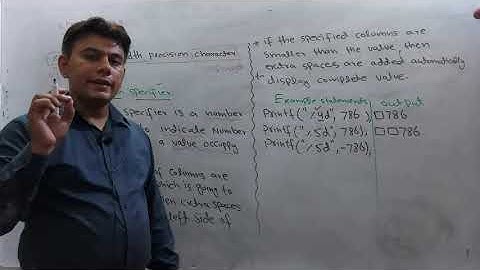 dth precision character
specifier
Specifier is a number
to indicate Number
a value occupy
of columns are
which is going to
en extra spaces
left side of
* if the specified columns are
smaller than the value, then
extra spaces are added automatically
to display complete value.
Example statements output
Printf("%4d", 786) □786
Printf("%5d", 786), □□786
Printf("%5d", -786),